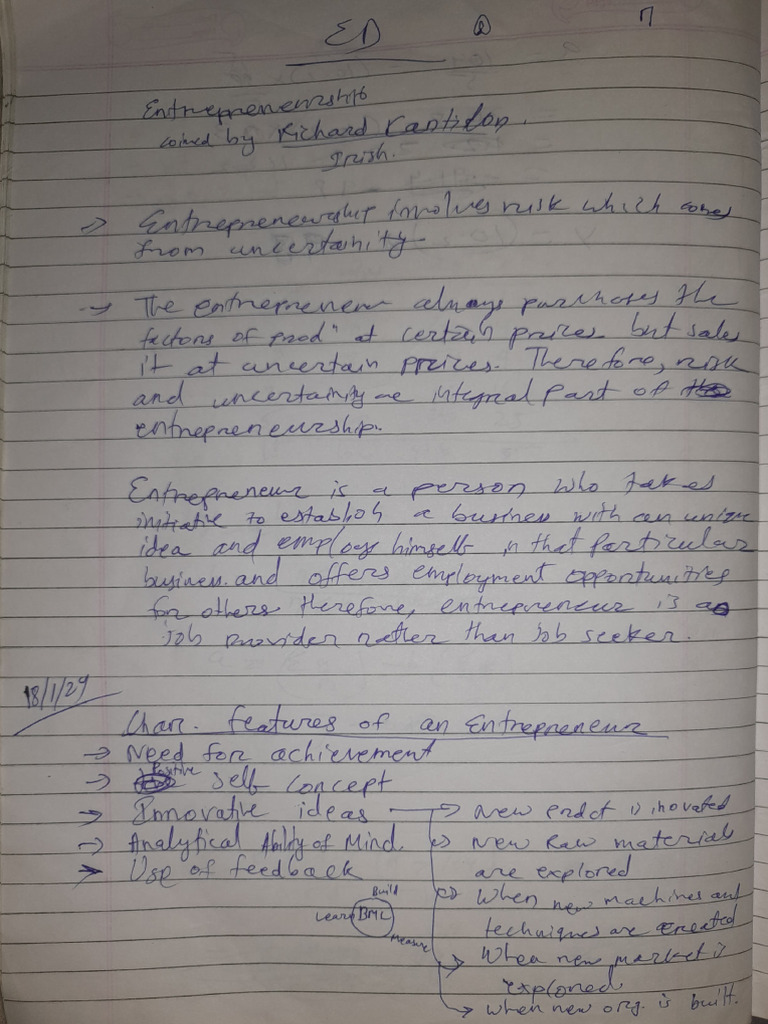 ED
Entrepreneurship
coined by Richard Kantilon.
Irish.
→ Entrepreneurship involves risk which comes
from uncertainity
→ The entrepreneur always purchases the
factors of prodⁿ at certain prices but sales
it at uncertain prices. Therefore, risk
and uncertainity are integral part of
entrepreneurship.
Entrepreneur is a person who takes
initiative to establish a business with an unique
idea and employs himself in that particular
business and offers employment opportunities
for others therefore, entrepreneur is a
job provider rather than job seeker.
18/1/24
Char. features of an Entrepreneur
→ Need for achievement
→ Positive self concept
→ Innovative ideas → New prdct is inovated
→ Analytical Ability of Mind. → New Raw material
→ Use of feedback are explored
Build → When new machines and
Learn BML techniques are created
Measure → When new market is
explored
→ when new org. is built.